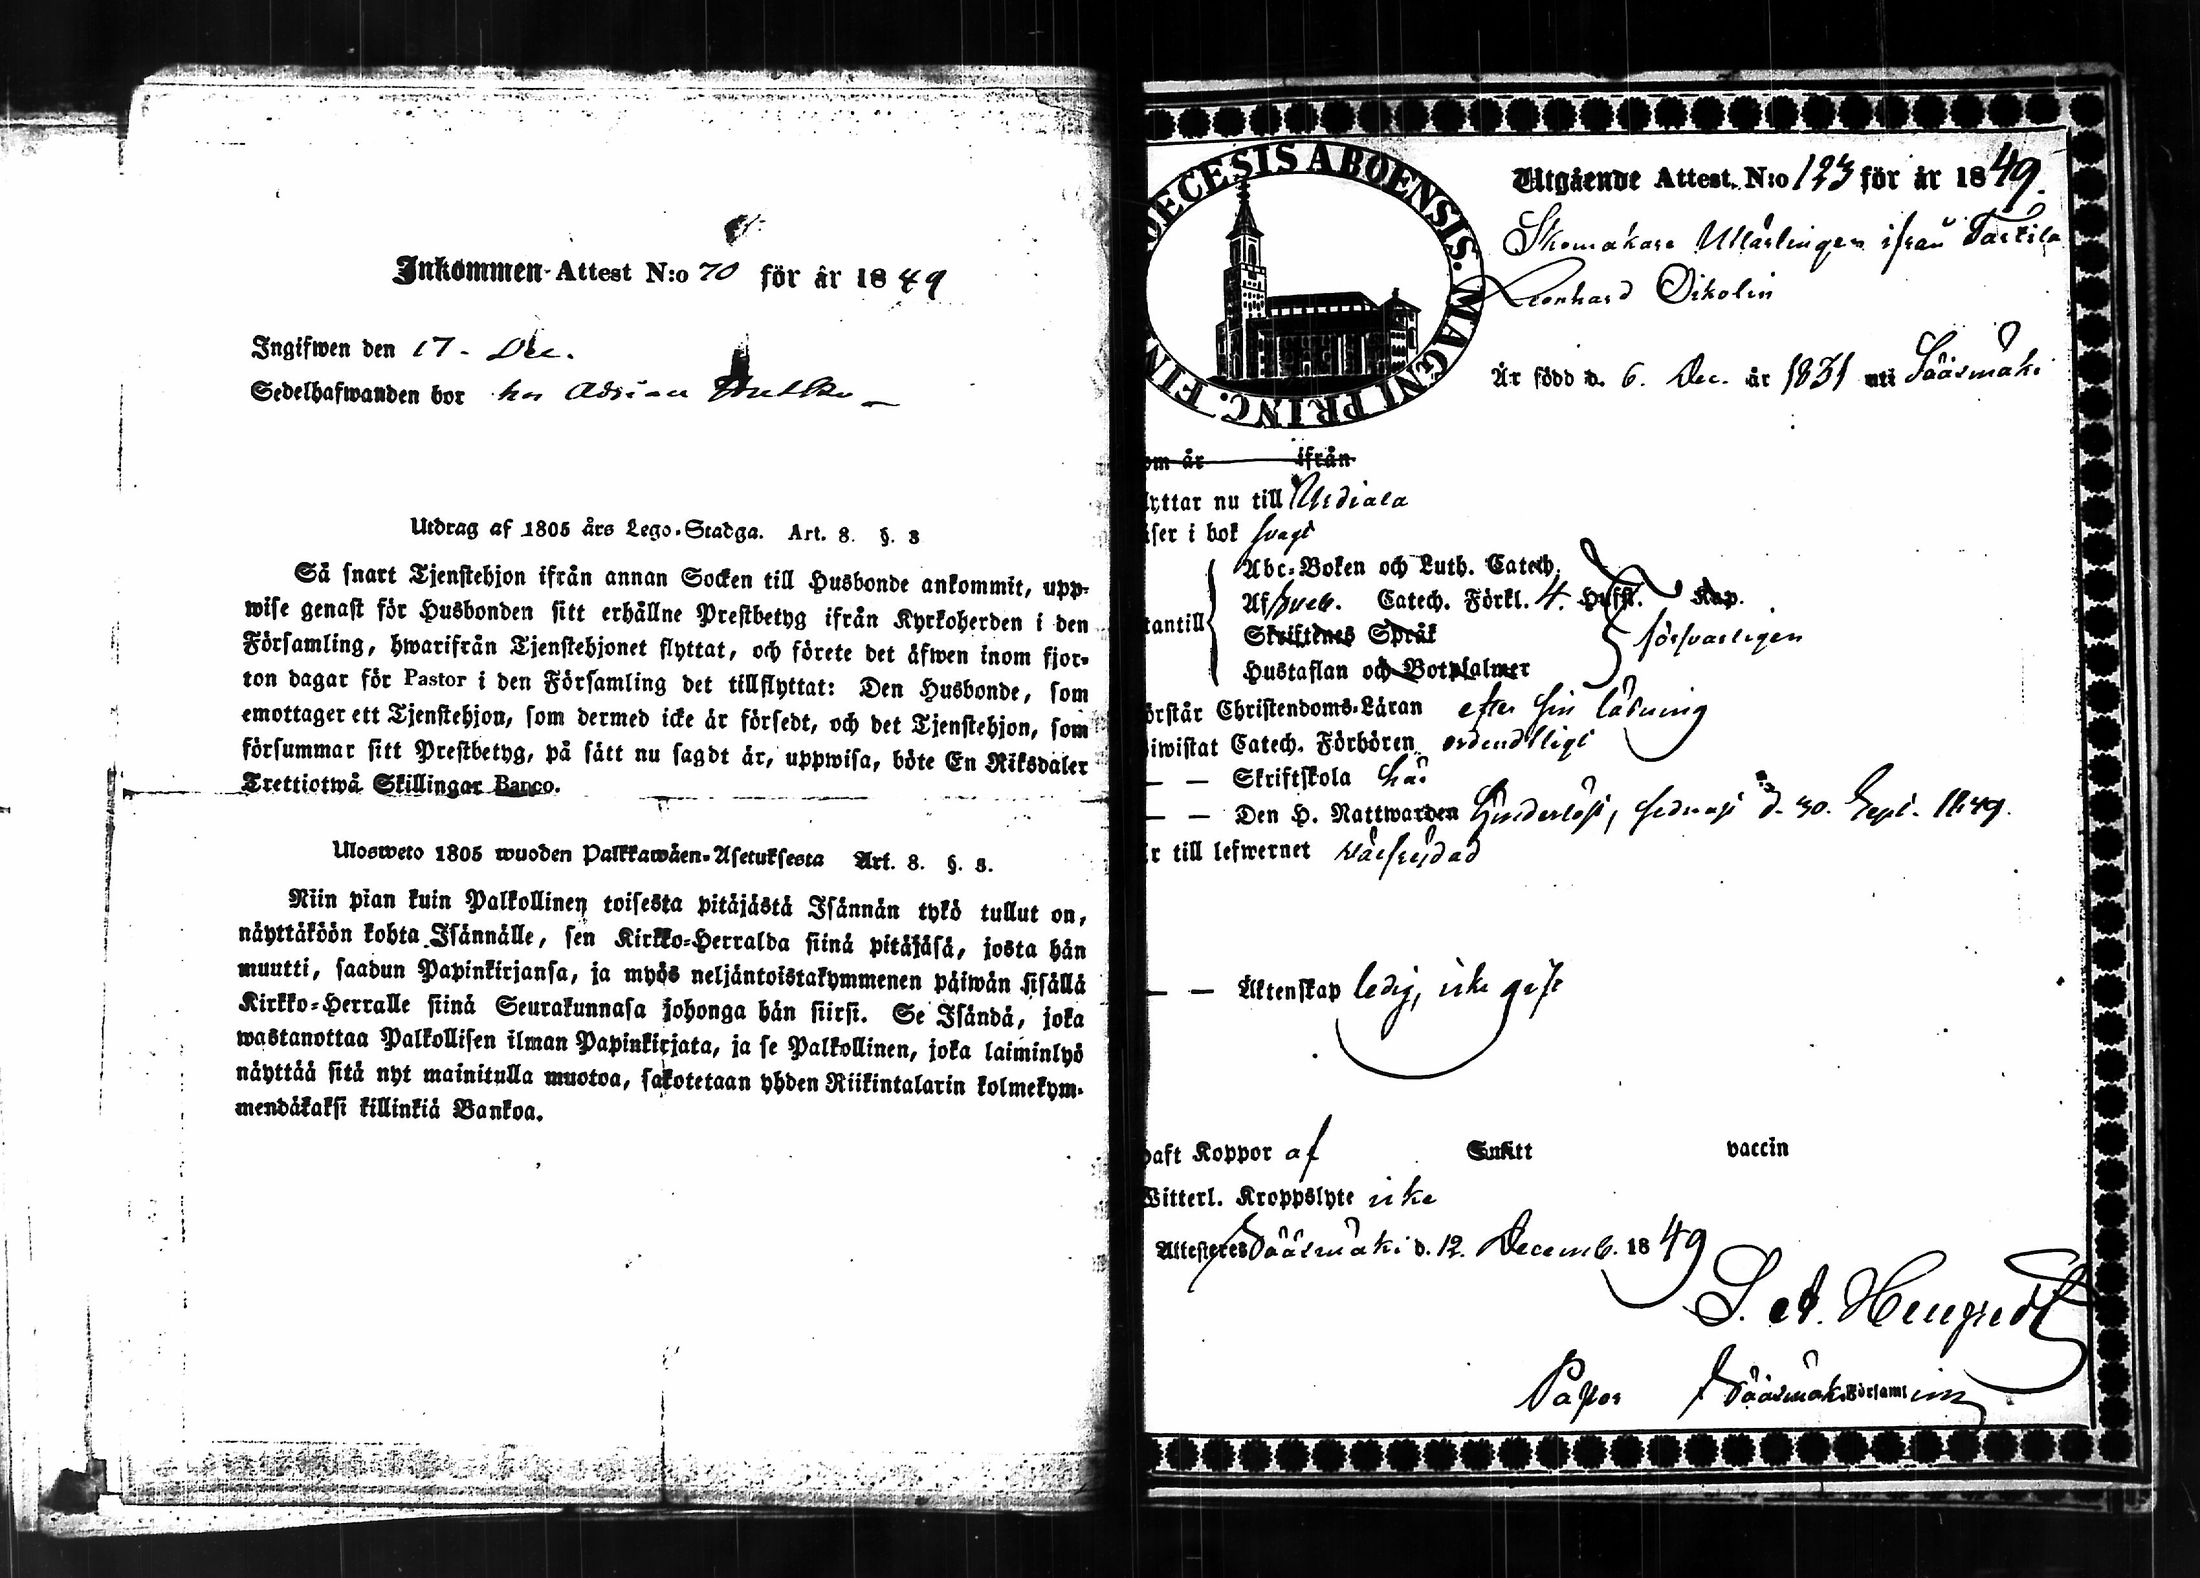 Inkommen Attest N:o 70 för år 1849
Ingifwen den 17. Dec.
Sedelhafwanden bor hos Adrian
Utdrag af 1805 års Lego-Stadga. Art. 8. §. 3
Så snart Tjenstehjon ifrån annan Socken till Husbonde ankommit, upp-
wise genast för Husbonden sitt erhållne Prestbetyg ifrån Kyrkoherden i den
Församling, hwarifrån Tjenstehjonet flyttat, och förete det äfwen inom fjor-
ton dagar för Pastor i den Församling det tillflyttat: Den Husbonde, som
emottager ett Tjenstehjon, som dermed icke är försedt, och det Tjenstehjon, som
försummar sitt Prestbetyg, på sätt nu sagdt är, uppwisa, böte En Riksdaler
Trettiotwå Skillingar Banco.
Ulosweto 1805 wuoden Palkkawäen-Asetuksesta Art. 8. §. 3.
Niin pian kuin Palkollinen toisesta pitäjästä Isännän tykö tullut on,
näyttäköön kohta Isännälle, sen Kirkko-Herralda siinä pitäjäsä, josta hän
muutti, saadun Papinkirjansa, ja myös neljäntoistakymmenen päiwän sisällä
Kirkko-Herralle siinä Seurakunnasa johonga hän siirsi. Se Isändä, joka
wastanottaa Palkollisen ilman Papinkirjata, ja se Palkollinen, joka laiminlyö
näyttää sitä nyt mainitulla muotoa, sakotetaan yhden Riikintalarin kolmekym-
mendäkaksi killinkiä Bankoa.
DECESIS ABOENSIS. MAGNI PRINC. FIN
Utgående Attest. N:o 123 för år 1849.
Skomakare Utlärlingen ifrån Tarkila
Leonhard Oikolin
Är född d. 6. Dec. år 1831 uti Sääsmäki
om år ifrån
lyttar nu till Urdiala
äser i bok svagt
Abc-Boken och Luth. Catech.
Af Sveb. Catech. Förkl. 4. Hufst. Kap.
tantill Skriftenes Språk försvarligen
Hustaflan och Botpsalmer
örstår Christendoms-Läran efter sin läsning
iwistat Catech. Förhören ordentligt
— — Skriftskola här
— — Den H. Nattwarden hinderlöst, sednast d. 30. Sept. 1849.
r till lefwernet wälfrejdad
— — Äktenskap ledig, icke gift
haft Koppor af Smitt vaccin
Witterl. Kroppslyte icke
Attesteres Sääsmäki d. 12. Decemb. 1849
Pastor i Sääsmäki Församl